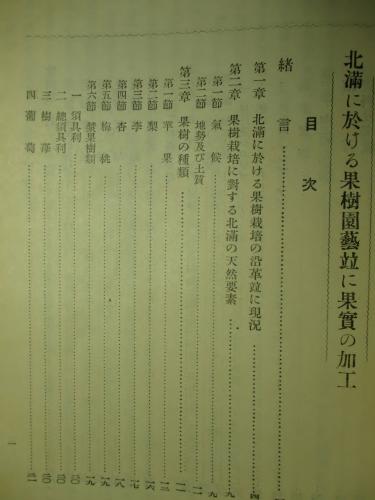 北滿に於ける果樹園藝竝に果實の加工
目次
緒言
第一章 北滿に於ける果樹栽培の沿革竝に現況
第二章 果樹栽培に對する北滿の天然要素
第一節 氣候
第二節 地勢及び土質
第三章 果樹の種類
第一節 苹果
第二節 梨
第三節 李
第四節 杏
第五節 梅桃
第六節 漿果樹類
一 須具利
二 總須具利
三 樹莓
四 葡萄
一